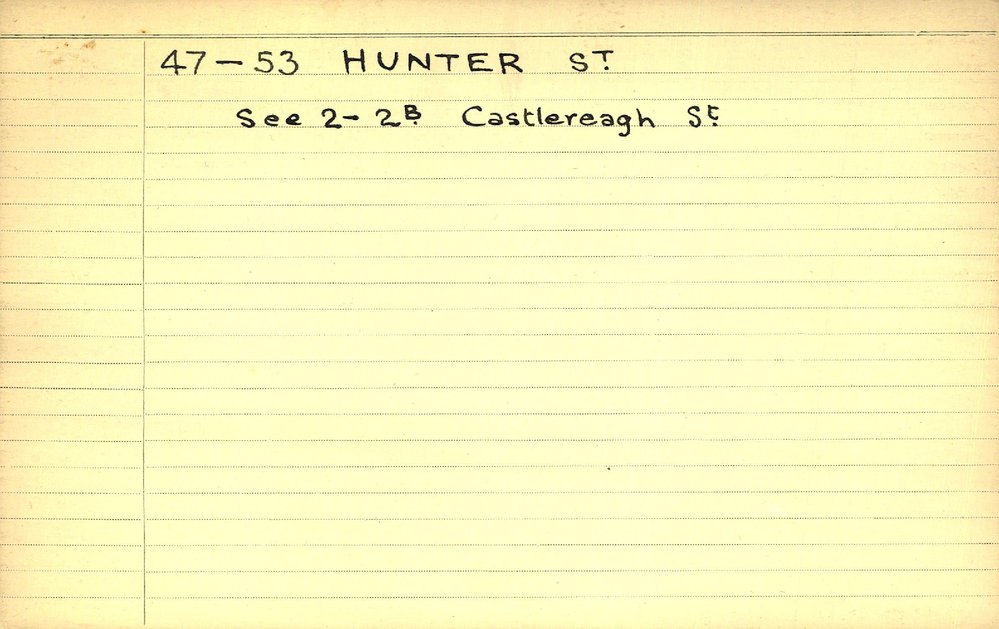 47-53 HUNTER ST
See 2-2B Castlereagh St